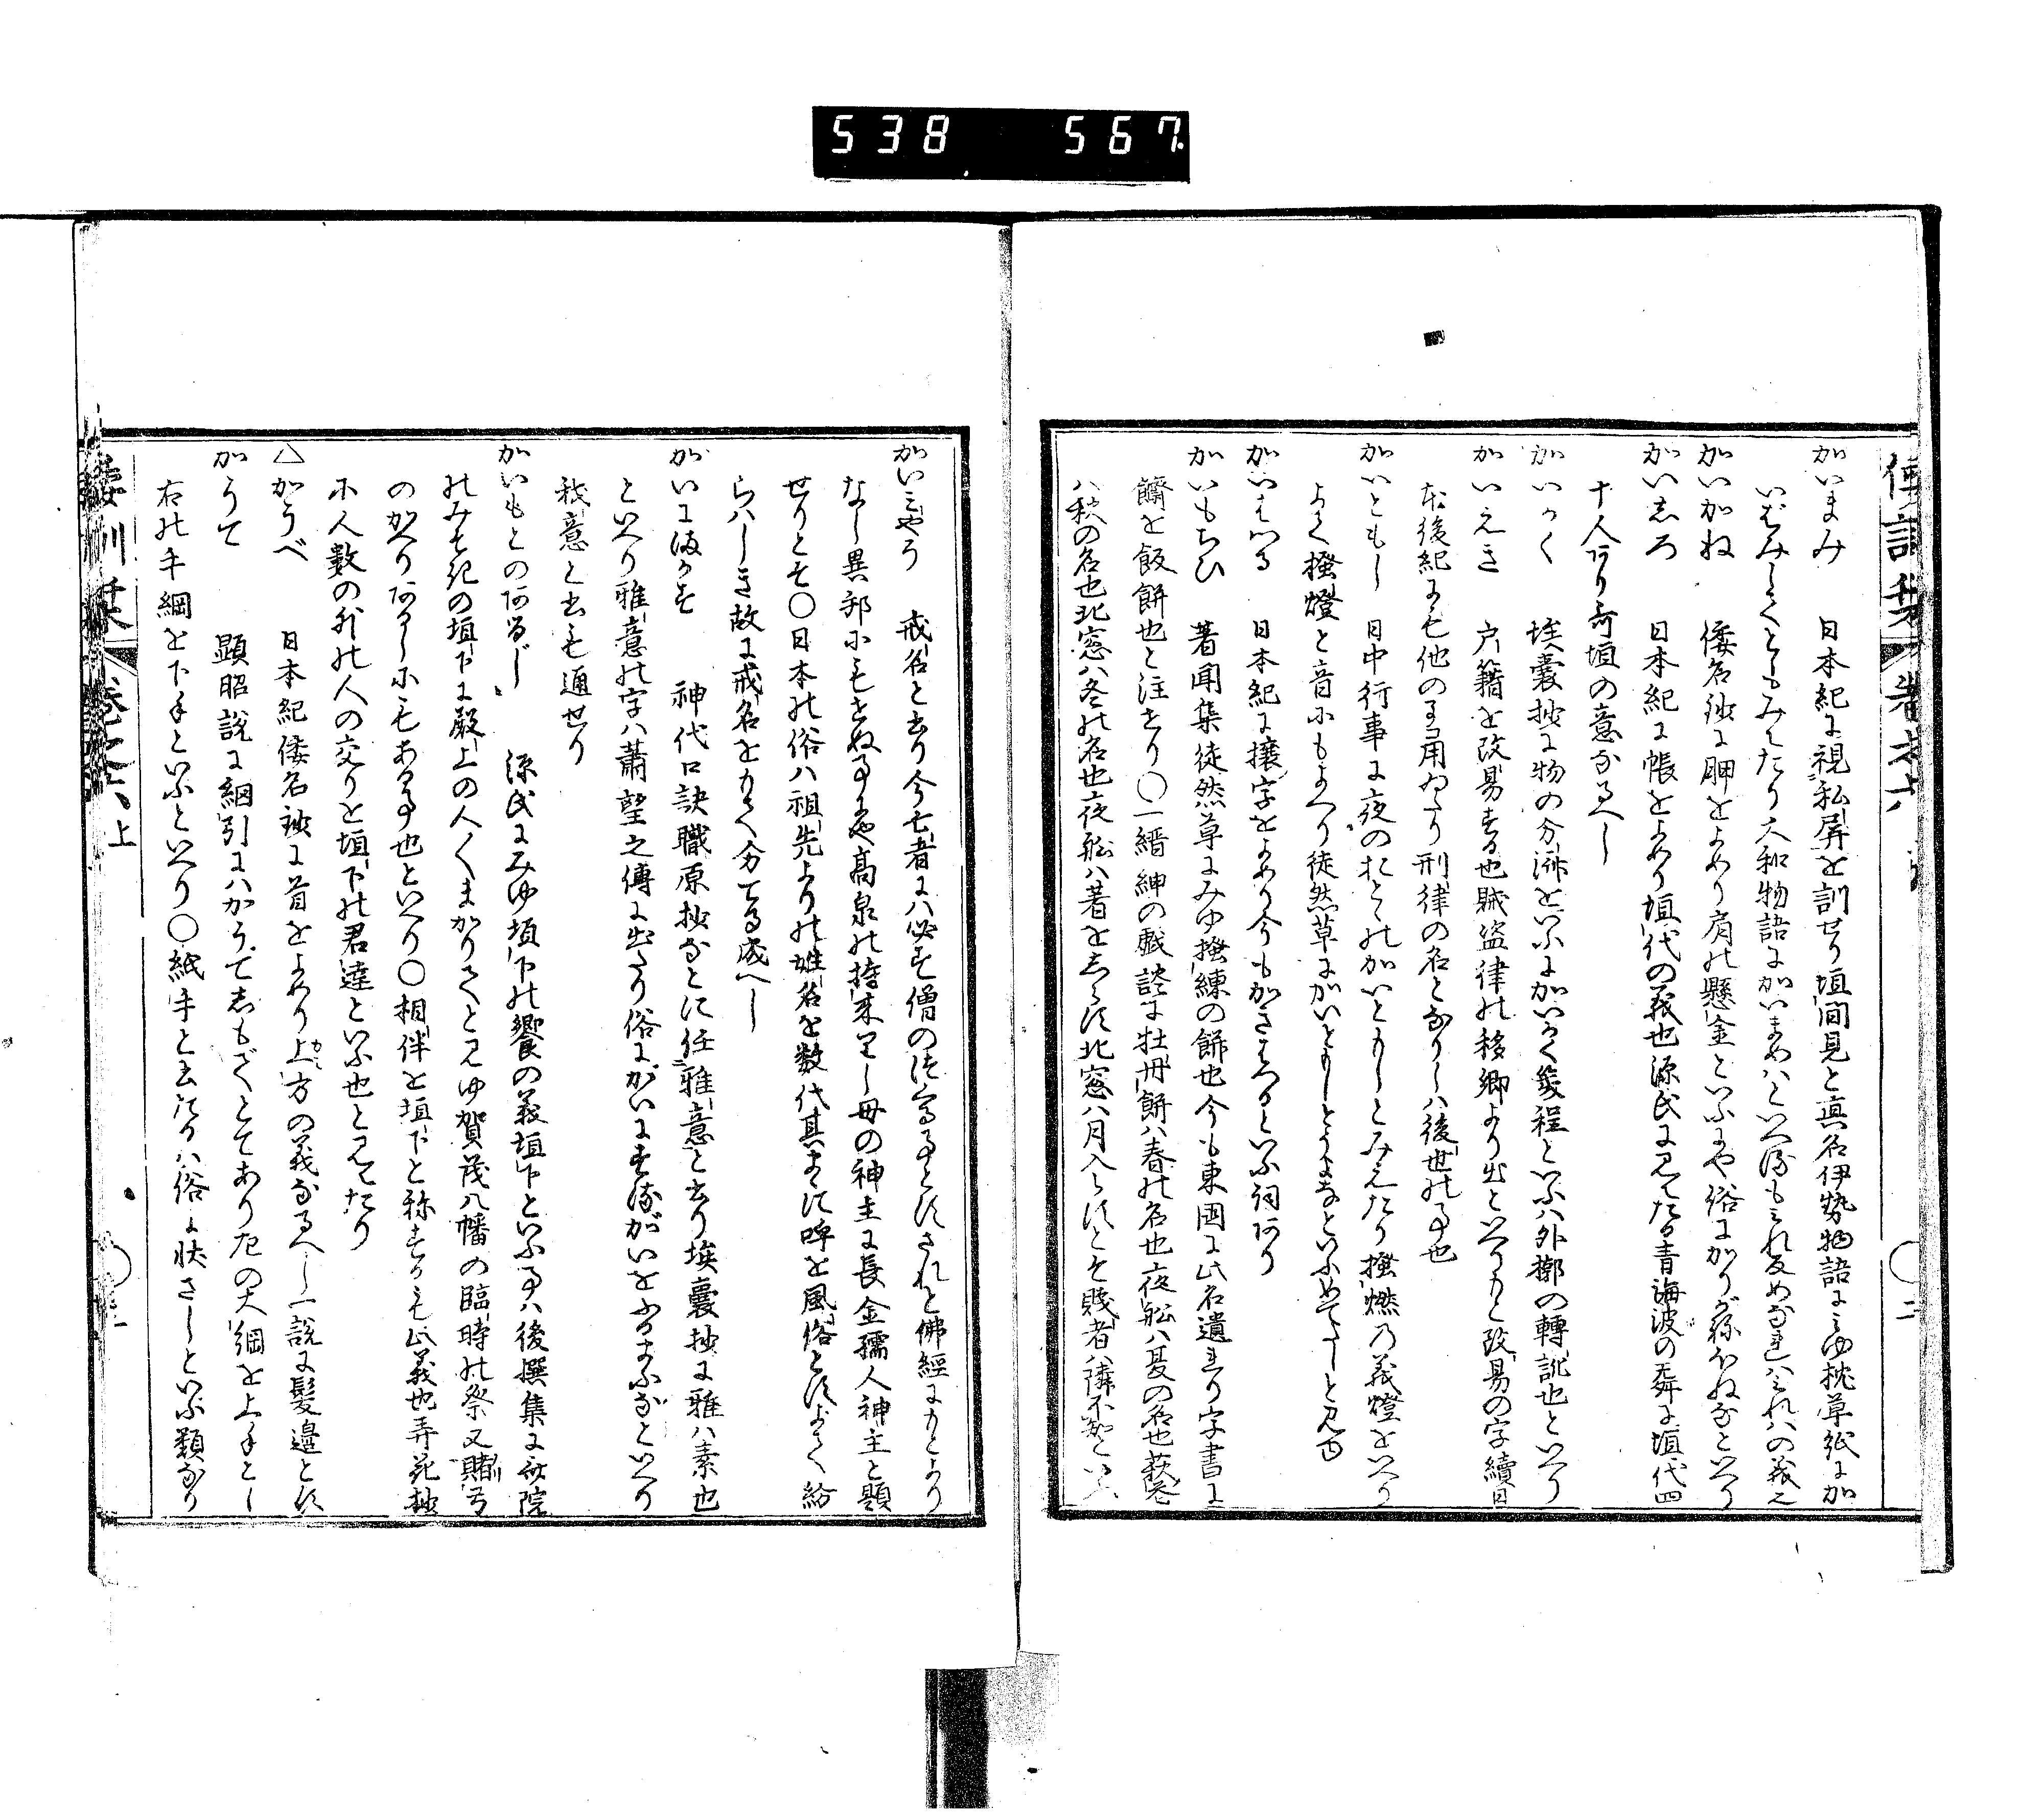 538 567
かいまみ 日本紀に視私屏を訓せり垣間見と真名伊勢物語にみゆ枕草紙にか
いばみしてともみえたり大和物語にかいまめはといへるも
かいかね 倭名鈔に胛をよめり肩の懸金といふにや俗にかりがねほねなといへり
かいしろ 日本紀に帳をよめり垣代の義也源氏に見えたる青海波の舞に垣代四
十人あり歌垣の意なるへし
かいかく 埃嚢抄に物の分涯をといふにかいかく幾程といふハ外擲の轉訛也といへり
かいえき 戸籍を改易する也賊盗律の移郷より出といへりもと改易の字續日
本後紀にも他の事に用ゐたり刑律の名となりしハ後世の事也
かいともし 日中行事に夜のおとゝのかいともしとみえたり掻燃の義燈をいへり
よて掻燈と音にもよへり徒然草にかいともしとうよなといふめてたしと見ゆ
かいはいる 日本紀に攘字をよめり今もかきはへるといふ詞あり
かいもちひ 著聞集徒然草にみゆ掻練の餅也今も東國に此名遺れり字書に
餬を飯餅也と注せり〇一縉紳の戯談に牡丹餅ハ春の名也夜舩ハ夏の名也萩の花
ハ秋の名也北窓ハ冬の名也夜舩ハ著をしらす北窓ハ月入らすとそ賤者ハ隣不知といふ
かいミやう 戒名と書り今亡者にハ必す僧の法名事とすされと佛經にもとより
なし異邦にもきかぬ事也高泉の持来りし母の神主に長金孺人神主と題
せりとそ〇日本の俗ハ祖先よりの姓名を数代其まゝに呼を風俗とすよて紛
らハしき故に戒名をもて分てる成へし
がいにまかす 神代口訣職原抄なとに任雅意と書り埃嚢抄に雅ハ素也
といへり雅意の字ハ蕭望之傳に出たり俗にがいにするがいをふるまふなといへり
我意と書も通せり
かいもとのあるじ 源氏にみゆ垣下の饗の義垣下といふ事ハ後撰集に命院
のみそきの垣下に殿上の人くまかりてと見ゆ賀茂八幡の臨時の祭又賭弓
のかへりあるしにもある事也といへり〇相伴を垣下と称するも此義也弄花抄
に人数の外の人の交りを垣下の君達といふ也と見えたり
△かうべ 日本紀倭名鈔に首をよめり上方の義なるへし一説に髪邊とす
かうて 顕昭説に綱引にハかうてしもてとてあり左の大綱を上手とし
右の手綱を下手といふといへり〇紙手と書るハ俗に状さしといふ類なり
倭訓栞 巻之六上